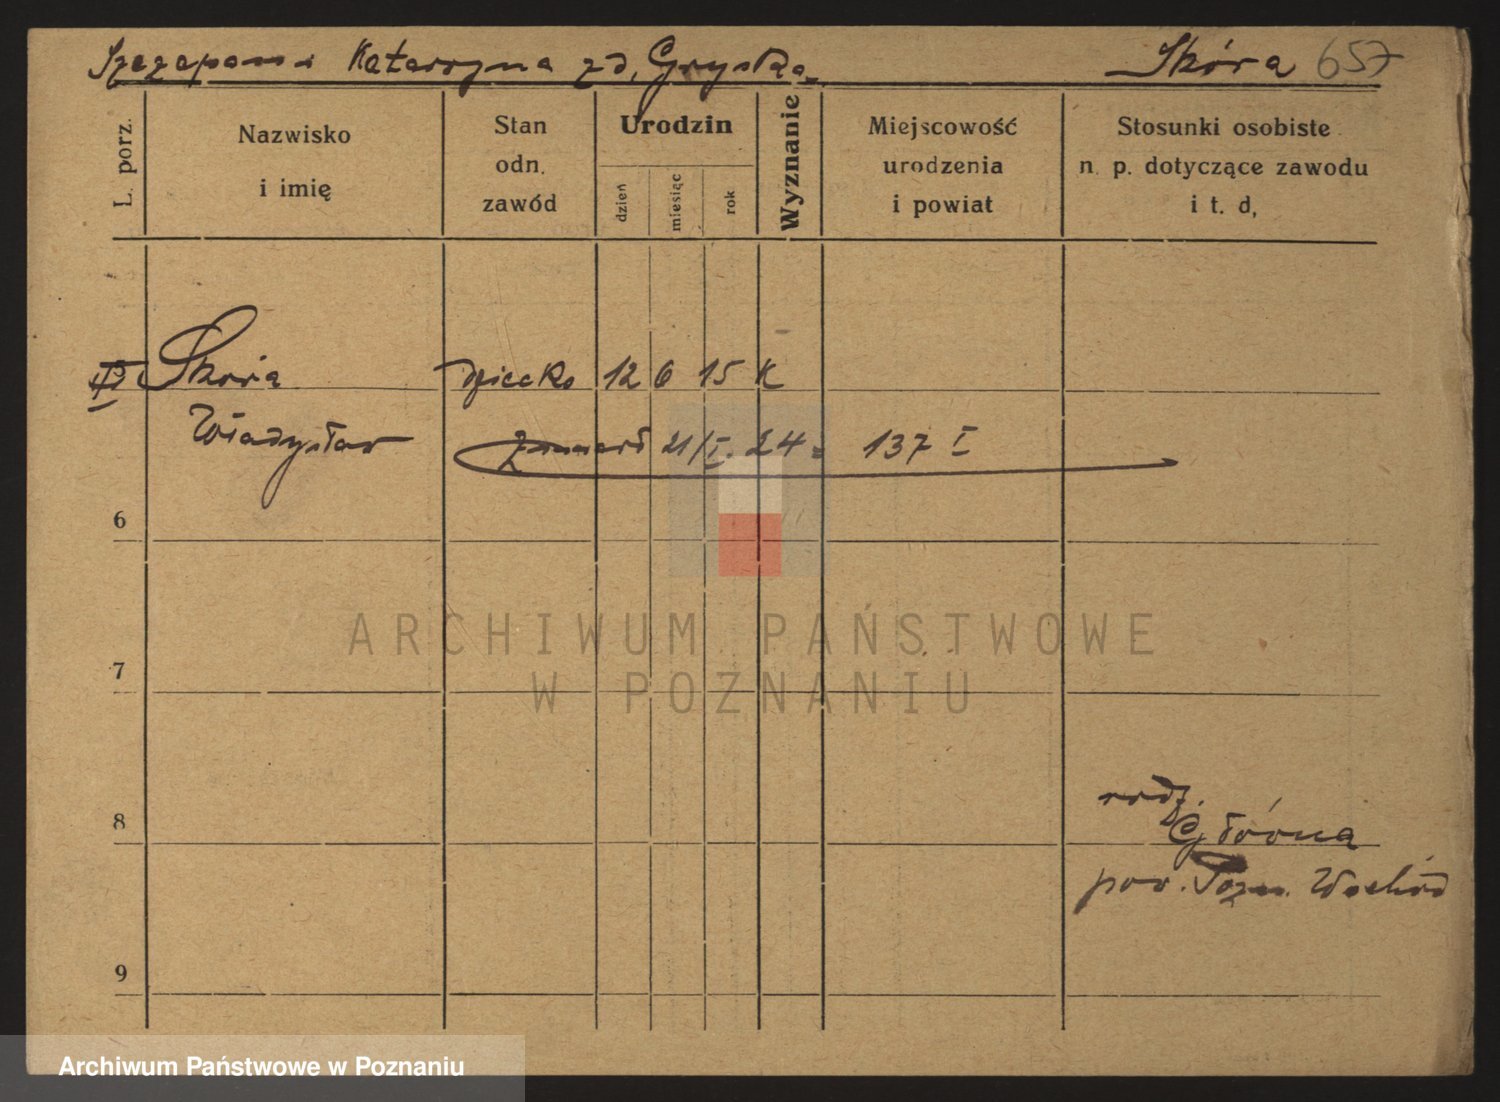 Szczepan i Katarzyna z d. Gryska Skóra 657
L. porz.
Nazwisko
i imię
Stan
odn.
zawód
Urodzin
dzień
miesiąc
rok
Wyznanie
Miejscowość
urodzenia
i powiat
Stosunki osobiste
n. p. dotyczące zawodu
i t. d,
Skóra dziecko 12 6 15 K
Władysław
zmarł 21/I. 24 137 I
6
7
8
rodz.
Główna
pow. Pozn. Wschód
9
ARCHIWUM PAŃSTWOWE
W POZNANIU
Archiwum Państwowe w Poznaniu